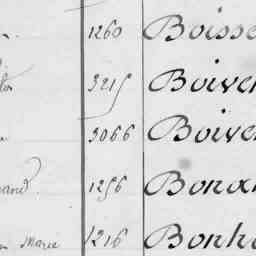 1260 Boisse
3215 Boiver
3066 Boiver
1256 Bonar
Marie 1216 Bonh